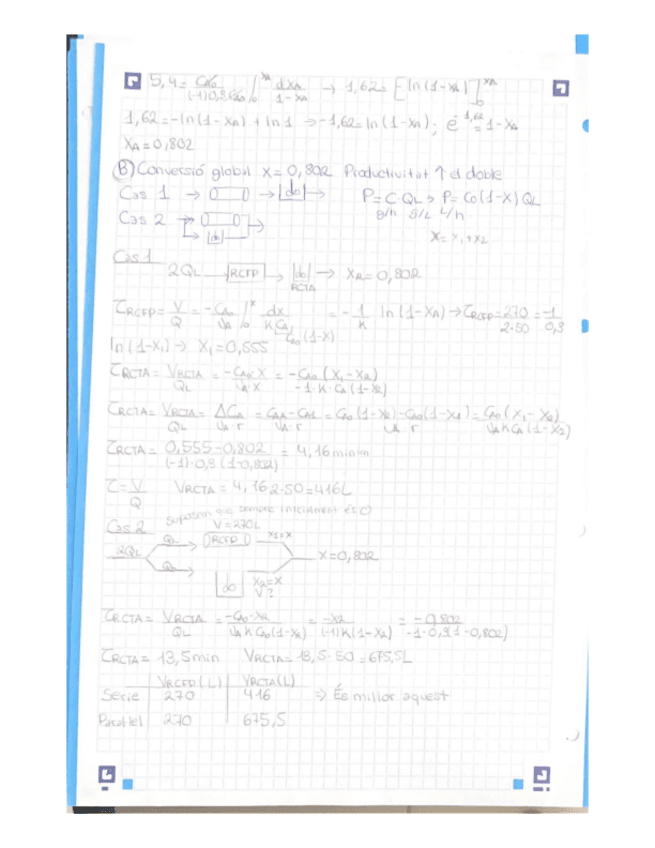 5,4 = CA0/((-1)0,3 CA0) ∫₀^XA dXA/(1-XA) → 1,62 = [ln(1-XA)]₀^XA
1,62 = -ln(1-XA) + ln1 → -1,62 = ln(1-XA); e^-1,62 = 1-XA
XA = 0,802
B) Conversió global X = 0,802 Productivitat ↑ el doble
Cas 1 → → do → P = C·QL → P = C0(1-X)QL
g/h g/L L/h
Cas 2 do
X = X1 + X2
Cas 1
2QL RCFP → do → XA = 0,802
RCTA
τRCFP = V/Q = -CA0/νA ∫₀^X dX/(K CA) = -1/K ln(1-XA) → τRCFP = 270/(2·50) = -1/0,3
CA0(1-X)
ln(1-X1) → X1 = 0,555
τRCTA = VRCTA/QL = -CA0·X/(νA·r) = -CA0(X1-X2)/(-1·K·CA(1-X2))
τRCTA = VRCTA/QL = ΔCA/(νA·r) = (CA2-CA1)/(νA·r) = (CA0(1-X2)-CA0(1-X1))/(νA r) = CA0(X1-X2)/(νA K CA(1-X2))
τRCTA = (0,555-0,802)/((-1)·0,3(1-0,802)) = 4,16 min
τ = V/Q VRCTA = 4,16·2·50 = 416L
Cas 2 suposem que sempre inicialment és 0
V=270L
2QL QL RCFP X1=X
X=0,802
QL do X2=X
V?
τRCTA = VRCTA/QL = -CA0·X2/(νA K CA0(1-X2)) = -X2/((-1)K(1-X2)) = -0,802/(-1·0,3(1-0,802))
τRCTA = 13,5min VRCTA = 13,5·50 = 675,5L
VRCFP(L) VRCTA(L)
Sèrie 270 416 → És millor aquest
Paral·lel 270 675,5